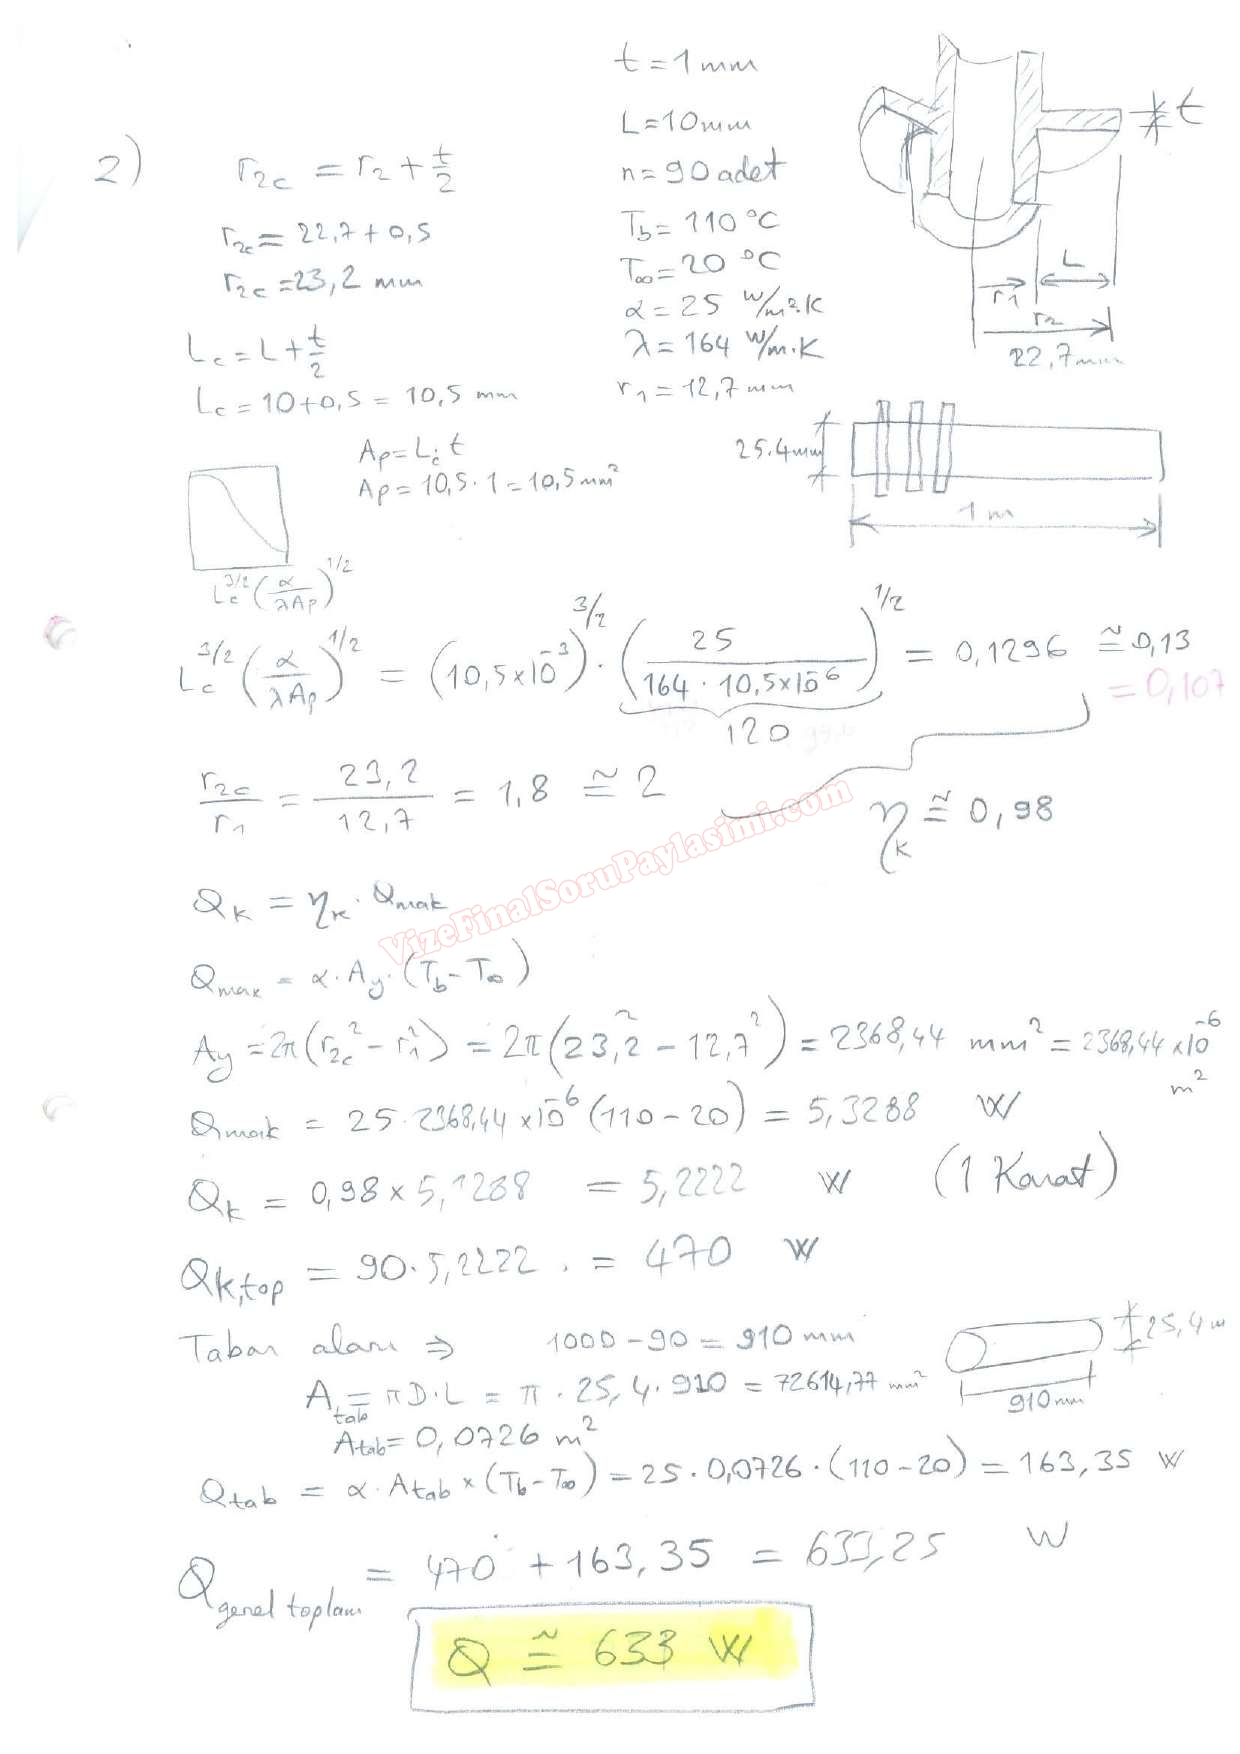 t = 1 mm
L = 10 mm
n = 90 adet
T_b = 110 °C
T_∞ = 20 °C
α = 25 W/m².K
λ = 164 W/m.K
r_1 = 12,7 mm
t
L
r_1
r_2
22,7 mm
25.4 mm
1 m
2)
r_2c = r_2 + t/2
r_2c = 22,7 + 0,5
r_2c = 23,2 mm
L_c = L + t/2
L_c = 10 + 0,5 = 10,5 mm
A_p = L_c . t
A_p = 10,5 . 1 = 10,5 mm²
L_c^3/2 (α/λA_p)^1/2
L_c^3/2 (α/λA_p)^1/2 = (10,5x10^-3)^3/2 . (25 / 164 . 10,5x10^-6)^1/2 = 0,1296 ≅ 0,13
= 0,107
120
r_2c/r_1 = 23,2/12,7 = 1,8 ≅ 2
η_k ≅ 0,98
VizeFinalSoruPaylasimi.com
Q_k = η_k . Q_mak
Q_max = α . A_y . (T_b - T_∞)
A_y = 2π(r_2c² - r_1²) = 2π(23,2² - 12,7²) = 2368,44 mm² = 2368,44 x10^-6 m²
Q_mak = 25 . 2368,44 x10^-6 (110 - 20) = 5,3288 W
Q_k = 0,98 x 5,1288 = 5,2222 W (1 Kanat)
Q_k,top = 90 . 5,2222 . = 470 W
Taban alanı ⇒ 1000 - 90 = 910 mm
25,4 m
910 mm
A_tab = πD.L = π . 25,4 . 910 = 72614,77 mm²
A_tab = 0,0726 m²
Q_tab = α . A_tab x (T_b - T_∞) = 25 . 0,0726 . (110 - 20) = 163,35 W
Q_genel toplam = 470 + 163,35 = 633,25 W
Q ≅ 633 W